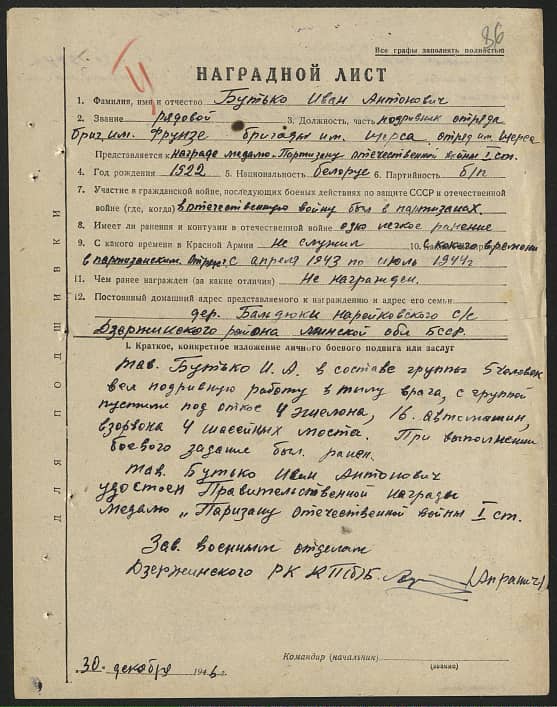 86
Все графы заполнять полностью
НАГРАДНОЙ ЛИСТ
1. Фамилия, имя и отчество Бутько Иван Антонович
2. Звание рядовой 3. Должность, часть подривник отряда
бриг. им. Фрунзе бригады им. Щерса отряд им. Щерса
Представляется к награде медалю „Партизану отечественной войны I ст.
4. Год рождения 1922 5. Национальность белорус 6. Партийность б/п
7. Участие в гражданской войне, последующих боевых действиях по защите СССР и отечественной
войне (где, когда) в отечественную войну был в партизанах.
8. Имеет ли ранения и контузии в отечественной войне одно легкое ранение
9. С какого времени в Красной Армии не служил 10. с какого времени
в партизанским отряде с апреля 1943 по июль 1944 г
11. Чем ранее награжден (за какие отличия) Не награжден.
12. Постоянный домашний адрес представляемого к награждению и адрес его семьи
дер. Бандюки нарейковского с/с
Дзержинского района минской обл БССР.
I. Краткое, конкретное изложение личного боевого подвига или заслуг
тав. Бутько И. А. в составе группы 5 человек
вел подривную работу в тылу врага, с группой
пустили под откос 4 эшелона, 16. автомашин,
взорвона 4 шассейных моста. При выполнении
боевого задание был ранен.
тав. Бутько Иван Антонович
удостоен Правительственной награды
медалю „Паризану Отечественной войны I ст.
Зав. военным отделам
Дзержинского РК КП(б)Б.
Командир (начальник)
(звание)
30 декабря 194
ДЛЯ ПОДШИВКИ